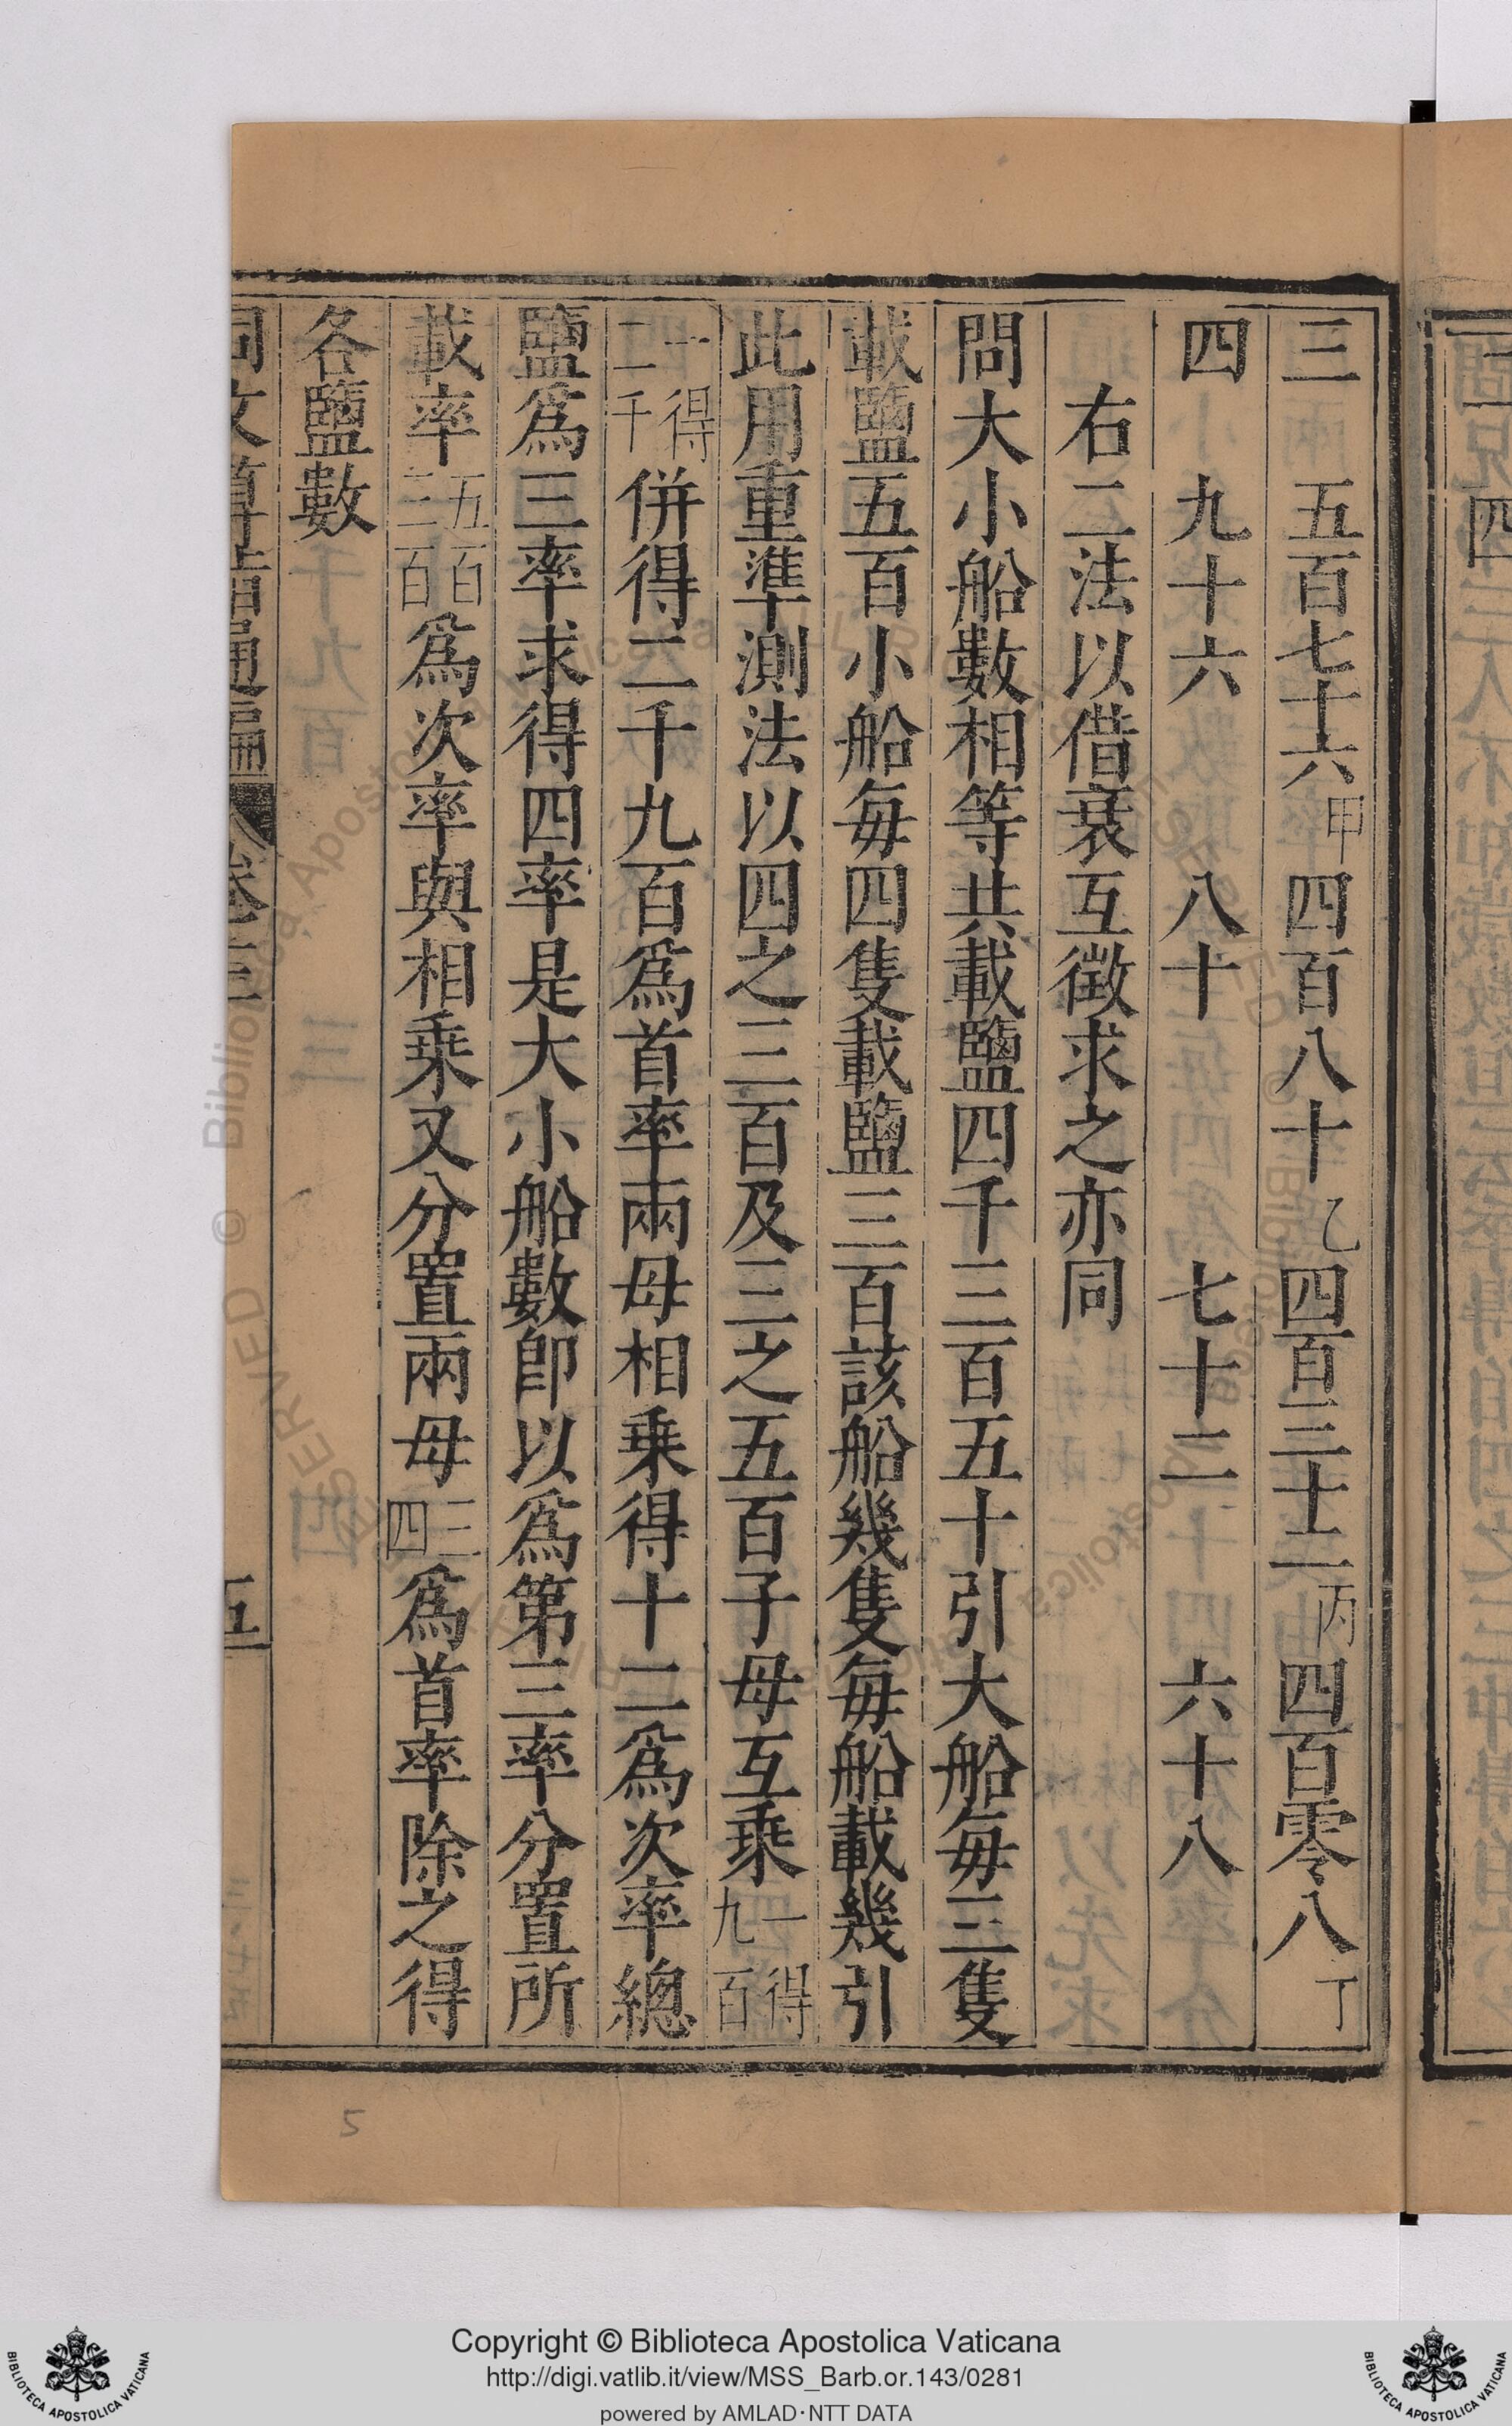 三　五百七十六甲四百八十乙四百三十二丙四百零八丁
四　九十六　八十　七十二　六十八
右二法以借衰互徵求之亦同
問大小船數相等共載鹽四千三百五十引大船每三隻
載鹽五百小船每四隻載鹽三百該船幾隻每船載幾引
此用重準測法以四之三百及三之五百子母互乘一得九百
一得二千併得二千九百爲首率兩母相乘得十二爲次率總
鹽爲三率求得四率是大小船數卽以爲第三率分置所
載率五百三百爲次率與相乘又分置兩母三四爲首率除之得
各鹽數
同文算指通編　卷三　五
5
Copyright © Biblioteca Apostolica Vaticana
http://digi.vatlib.it/view/MSS_Barb.or.143/0281
powered by AMLAD·NTT DATA
BIBLIOTECA APOSTOLICA VATICANA
BIBLIOTECA APOSTOLICA VATICANA